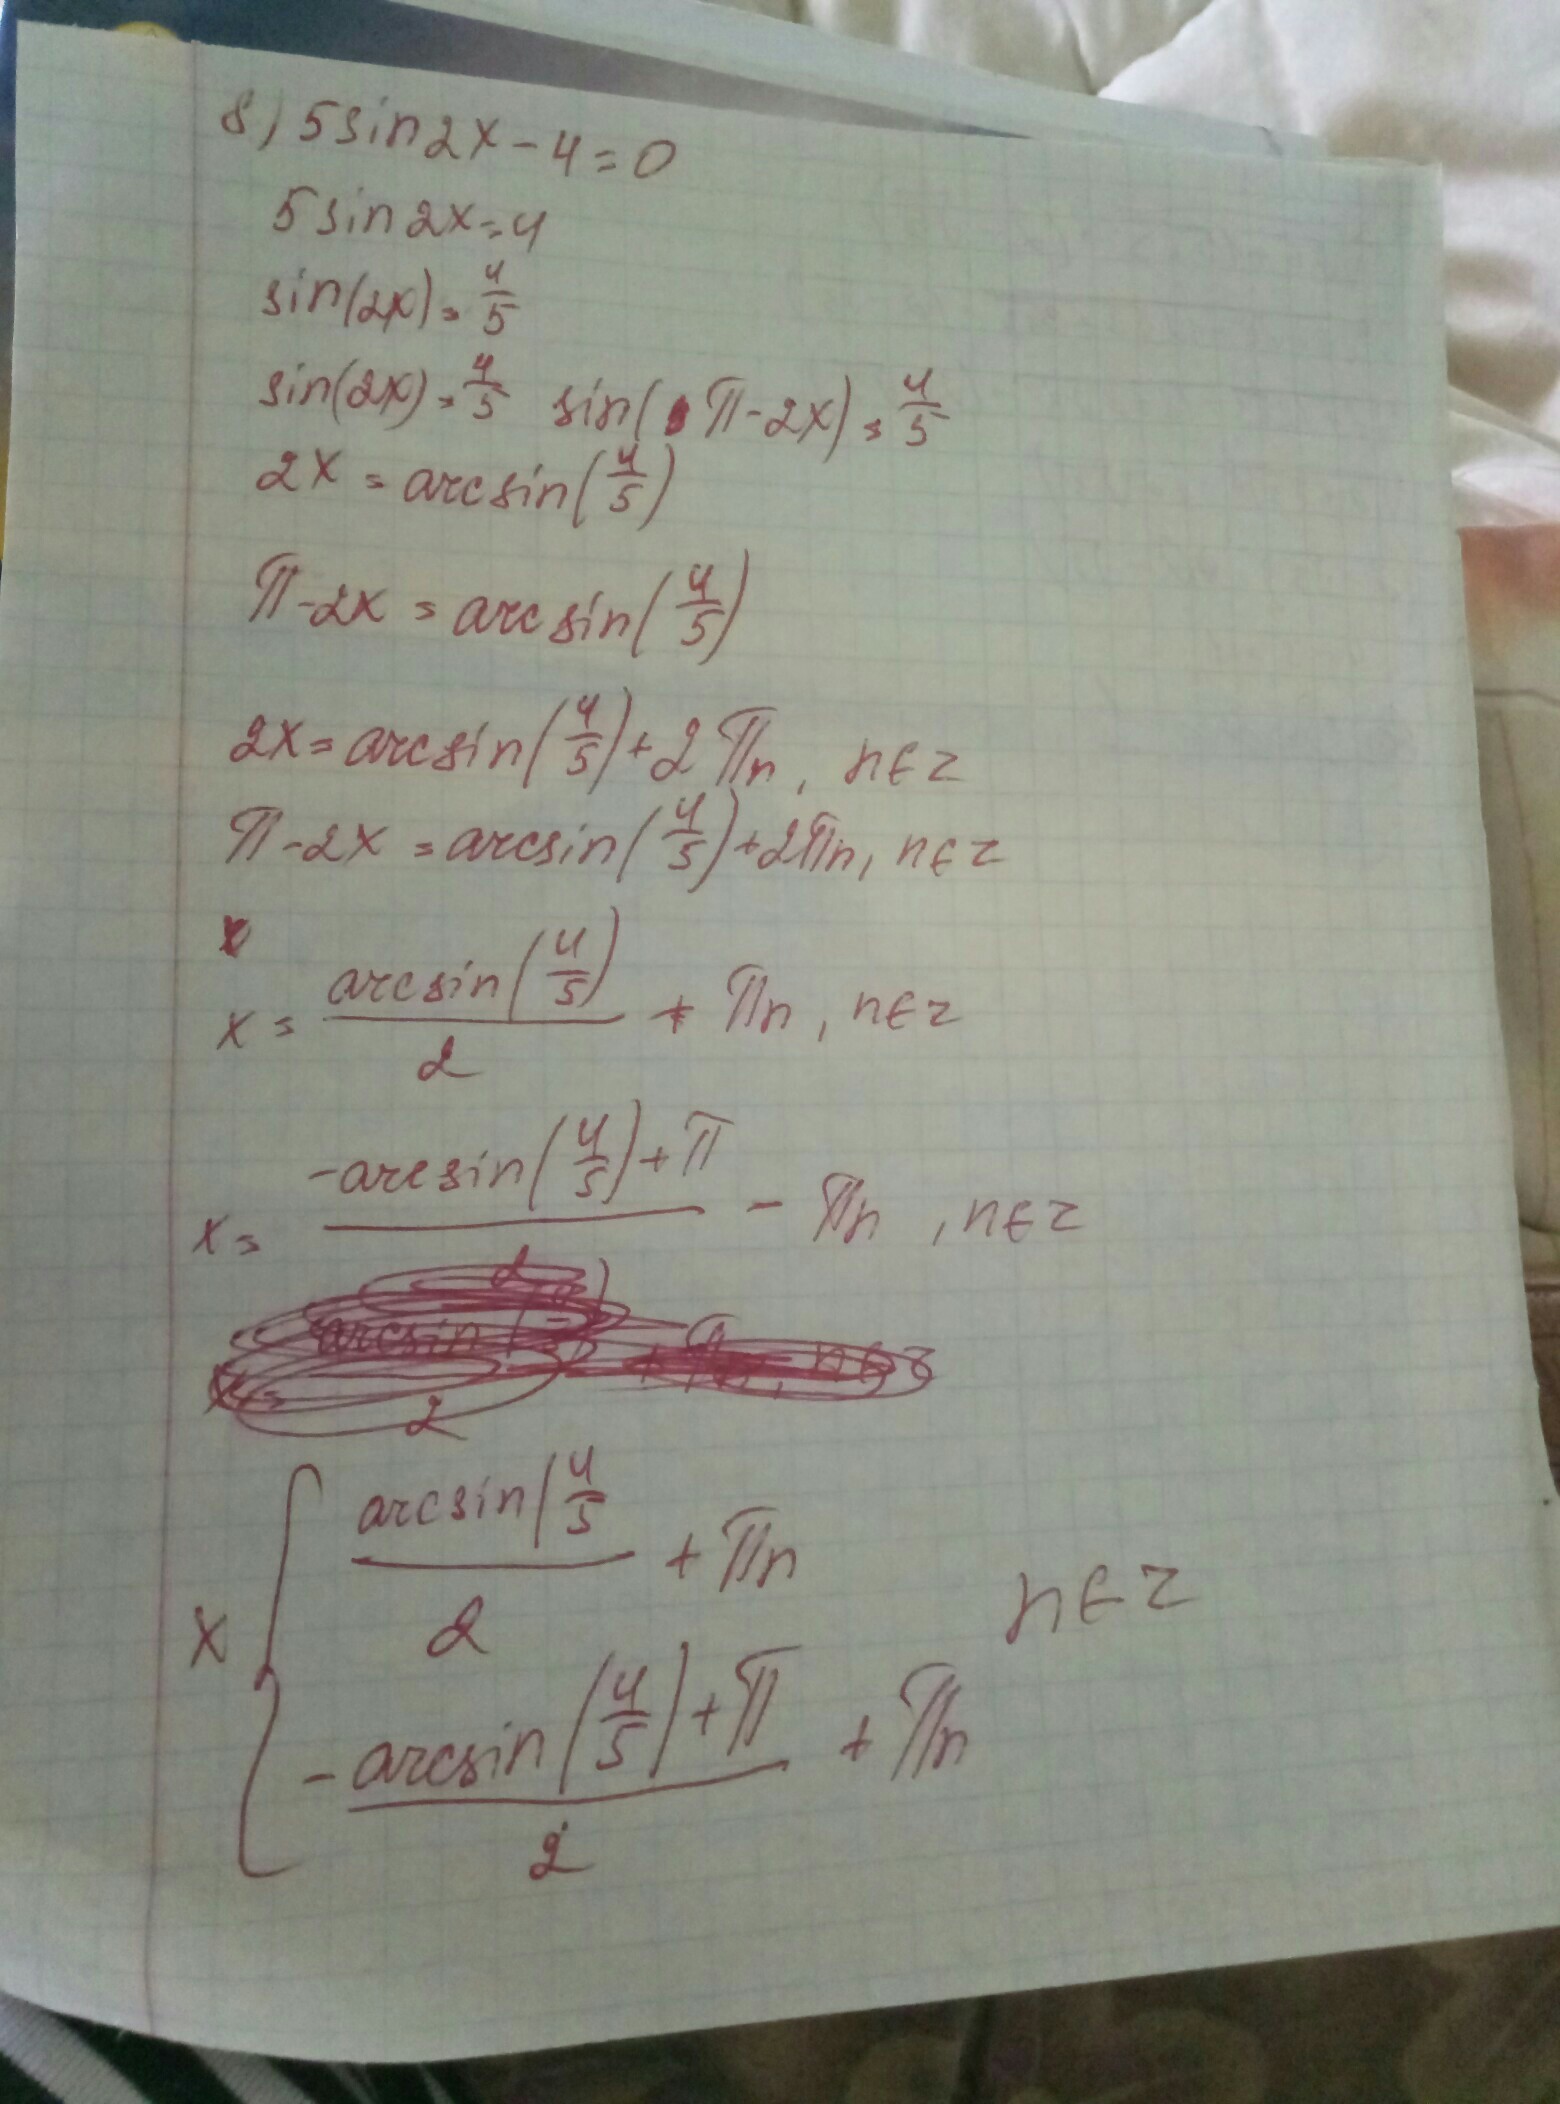 8) 5sin2x-4=0
5sin2x=4
sin(2x)=4/5
sin(2x)=4/5 sin(π-2x)=4/5
2x=arcsin(4/5)
π-2x=arcsin(4/5)
2x=arcsin(4/5)+2πn, n∈z
π-2x=arcsin(4/5)+2πn, n∈z
x=arcsin(4/5)/2+πn, n∈z
x=(-arcsin(4/5)+π)/2-πn, n∈z
x { arcsin(4/5/2+πn n∈z
-arcsin(4/5)+π/2+πn